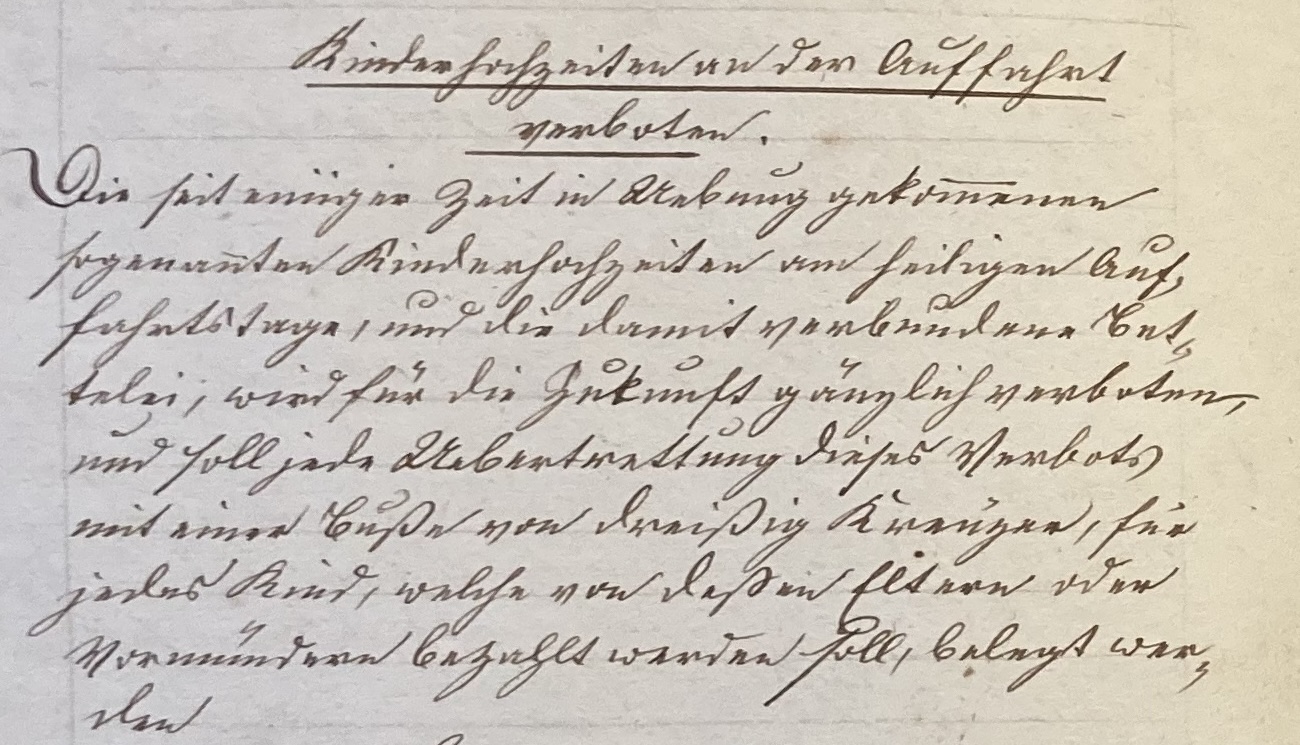 Kinderhochzeiten an der Auffahrt
verboten.
Die seit einiger Zeit in Uebung gekom̅enen
sogenan̅ten Kinderhochzeiten am heiligen Auf-
fahrtstage, und die damit verbundene Bet-
telei, wird für die Zukunft gänzlich verboten,
und soll jede Uebertrettung dieses Verbots
mit einer Buße von dreißig Kreuzer, für
jedes Kind, welche von deßen Eltern oder
Vormündern bezahlt werden soll, belegt wer-
den